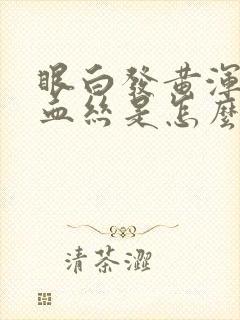 眼白發黃渾
血絲是怎麼
清茶澀